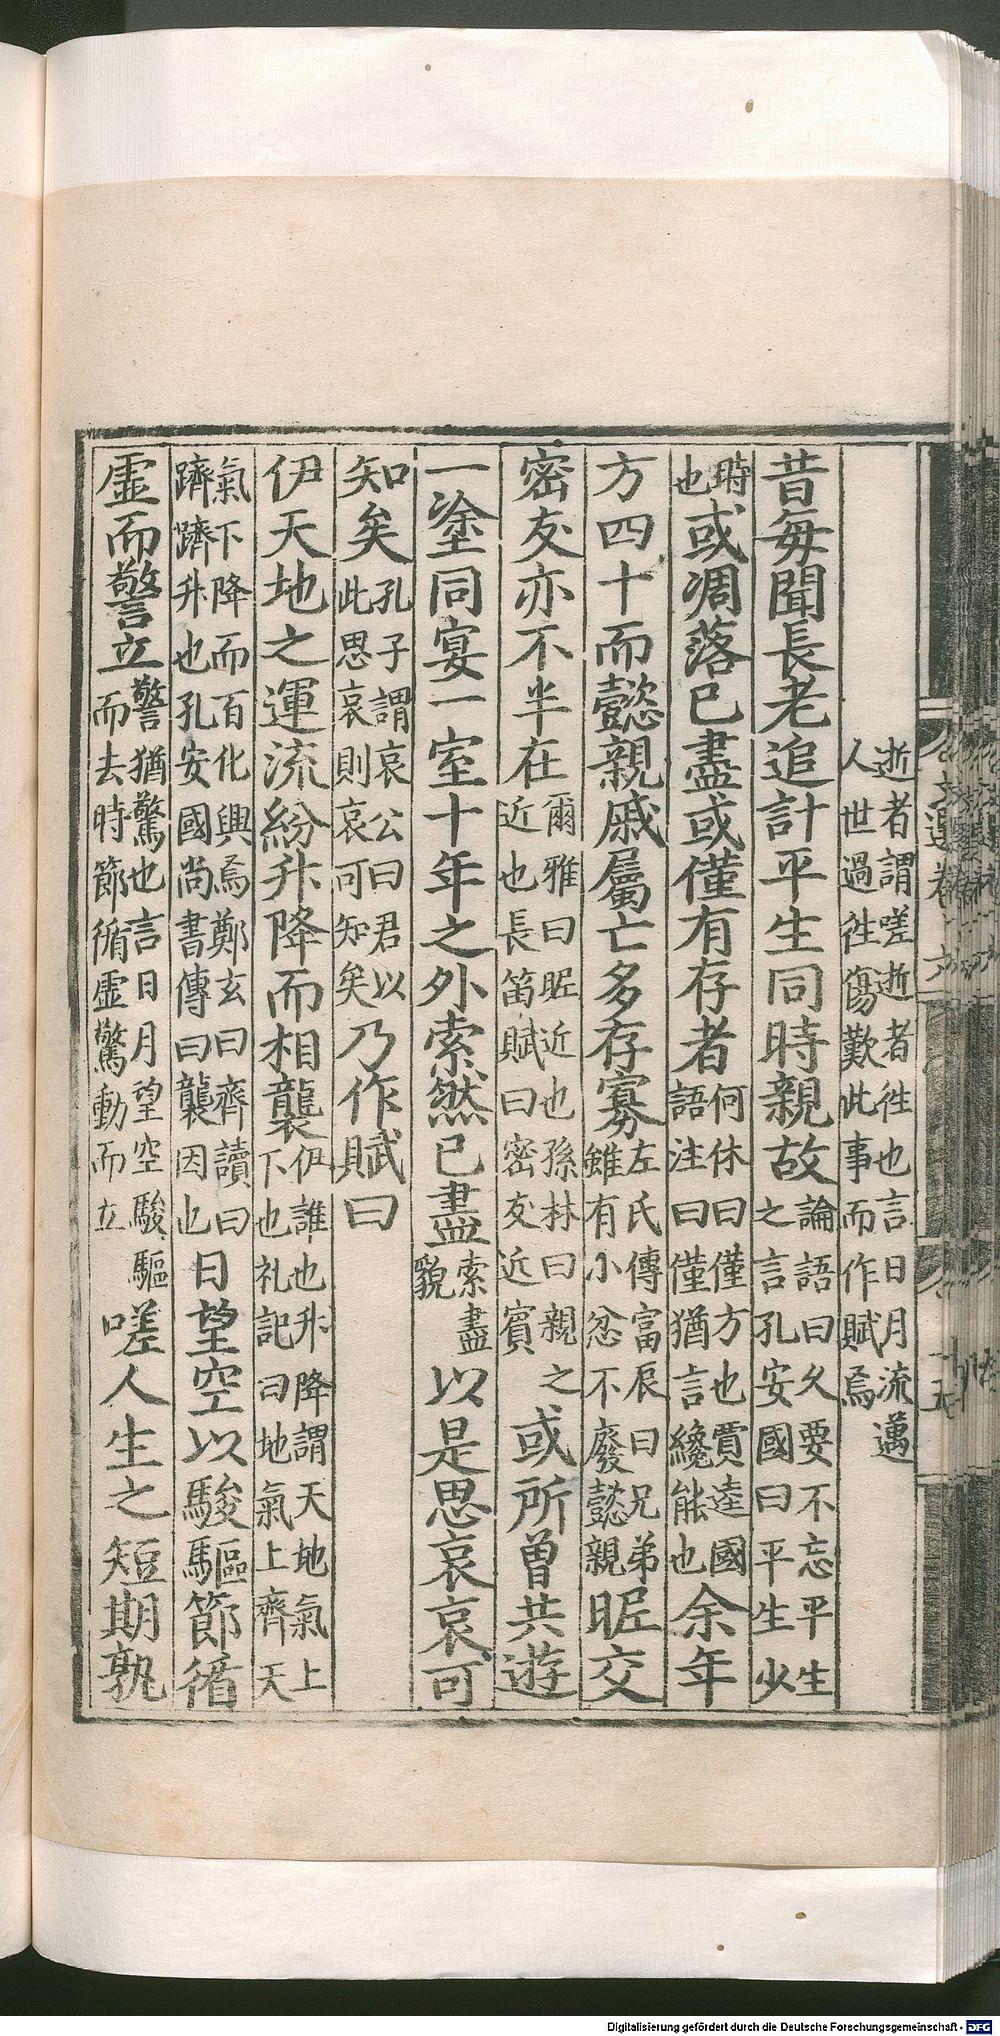 文選卷六
十五
逝者謂嗟逝者徃也言日月流邁
人世過徃傷歎此事而作賦焉
昔每聞長老追計平生同時親故論語曰久要不忘平生之言孔安國曰平生少
時也或凋落已盡或僅有存者何休曰僅方也賈逵國語注曰僅猶言纔能也余年
方四十而懿親戚屬亡多存寡左氏傳富辰曰兄弟雖有小忿不廢懿親昵交
密友亦不半在爾雅曰昵近也孫林曰親之近也長笛賦曰密友近賓或所曾共遊
一塗同宴一室十年之外索然已盡索盡貌以是思哀哀可
知矣孔子謂哀公曰君以此思哀則哀可知矣乃作賦曰
伊天地之運流紛升降而相襲伊誰也升降謂天地氣上下也礼記曰地氣上齊天
氣下降而百化興焉鄭玄曰齊讀曰躋躋升也孔安國尚書傳曰襲因也日望空以駿驅節循
虛而警立警猶驚也言日月望空駿驅而去時節循虛驚動而立嗟人生之短期孰
Digitalisierung gefördert durch die Deutsche Forschungsgemeinschaft - DFG